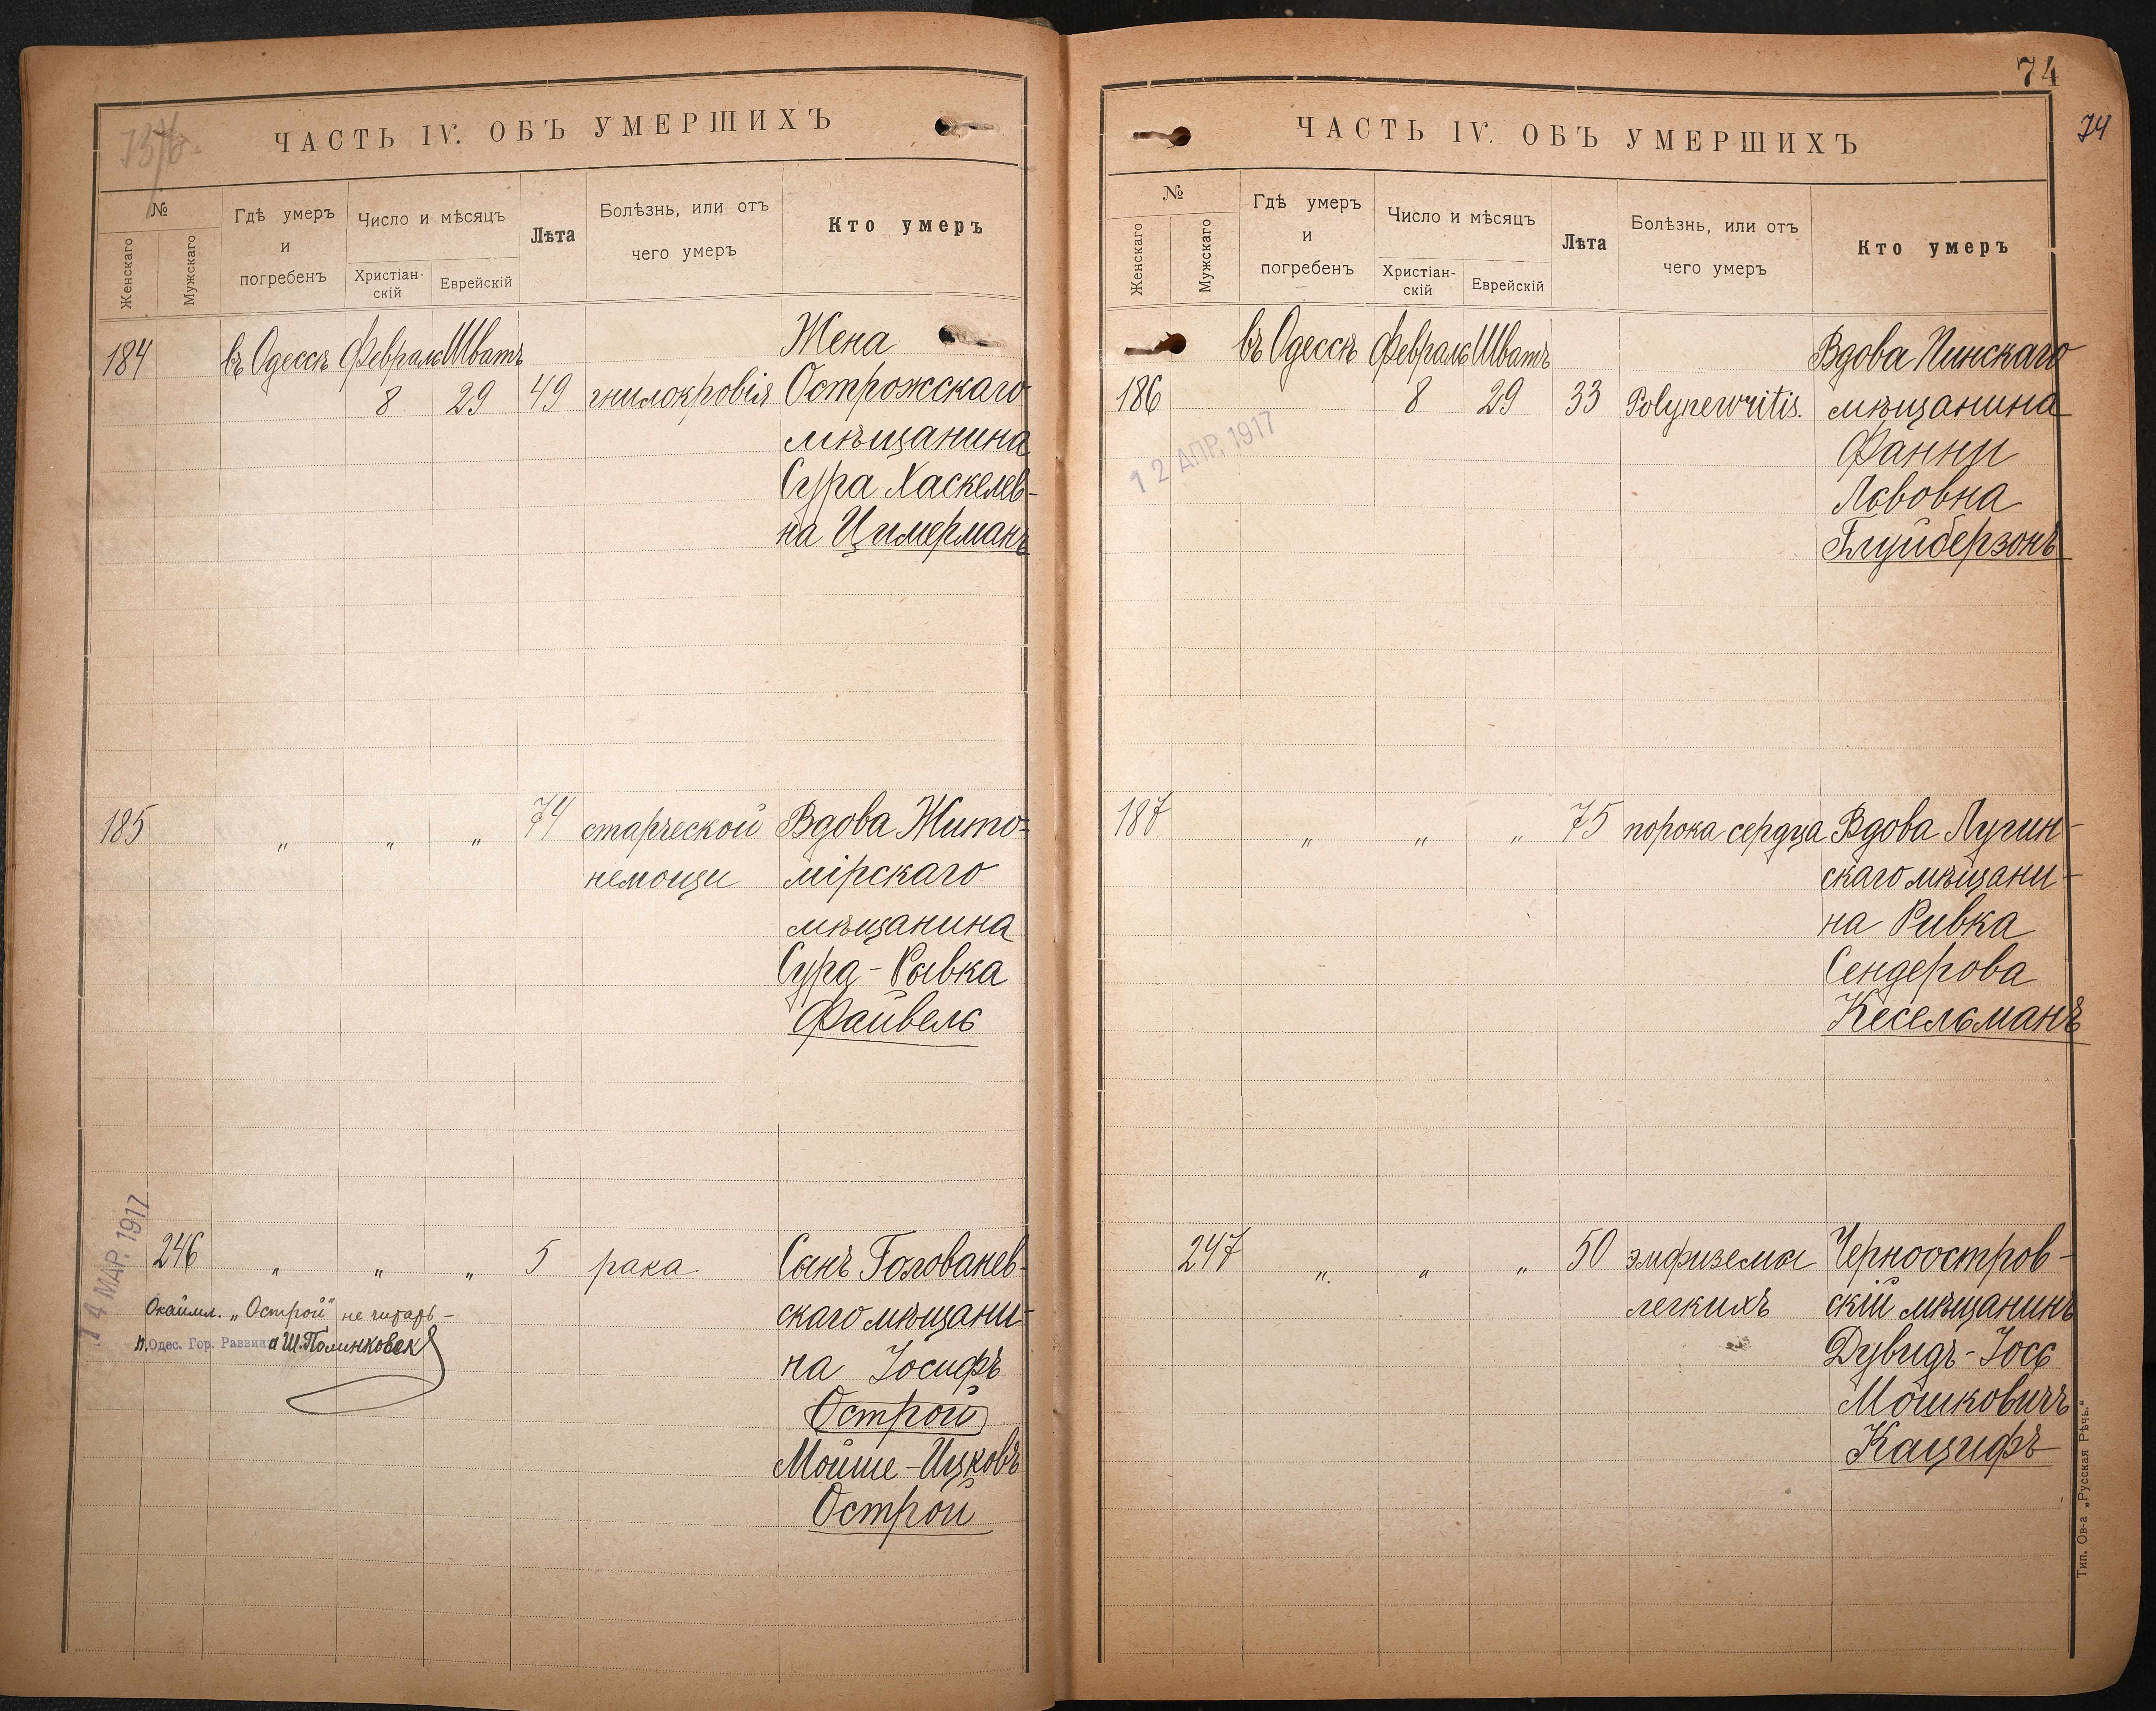 ЧАСТЬ IV. ОБЪ УМЕРШИХЪ
№
Женскаго
Мужскаго
Гдѣ умеръ
и
погребенъ
Число и мѣсяцъ
Христіан-
скій
Еврейскій
Лѣта
Болѣзнь, или отъ
чего умеръ
Кто умеръ
184 въ Одессѣ Февраль Шватъ Жена
8 29 49 гнилокровія Острожскаго
мѣщанина
Сура Хаскелев-
на Цимерманъ
185 " " " 74 старческой Вдова Жито-
немощи мірскаго
мѣщанина
Сура-Рывка
Файвель
14 МАР. 1917
246 " " " 5 рака Сынъ Голованев-
Окаймл. „Острой" не читать - скаго мѣщани-
п. Одес. Гор. Раввина Ш. Полинковск
на Іосифъ
Острой
Мойше-Ицковъ
Острой
74
74
ЧАСТЬ IV. ОБЪ УМЕРШИХЪ
№
Женскаго
Мужскаго
Гдѣ умеръ
и
погребенъ
Число и мѣсяцъ
Христіан-
скій
Еврейскій
Лѣта
Болѣзнь, или отъ
чего умеръ
Кто умеръ
въ Одессѣ Февраль Шватъ Вдова Пинскаго
186 8 29 33 Polynewritis. мѣщанина
12 АПР. 1917
Фанни
Львовна
Глуйберзонъ
187 " " " 75 порока сердца Вдова Лугин-
скаго мѣщани-
на Ривка
Сендерова
Кесельманъ
247 " " " 50 эмфиземы Черноостров-
легкихъ скій мѣщанинъ
Дувидъ-Іось
Мошковичъ
Кацифъ
Тип. Ов-а „Русская Рѣчь."